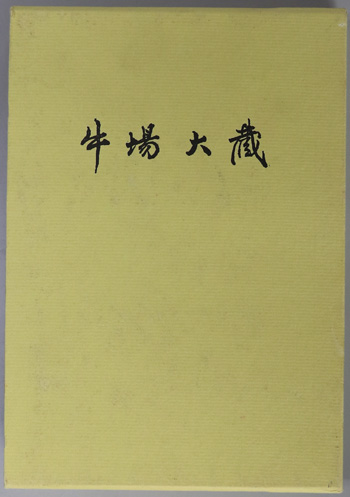 牛場大蔵